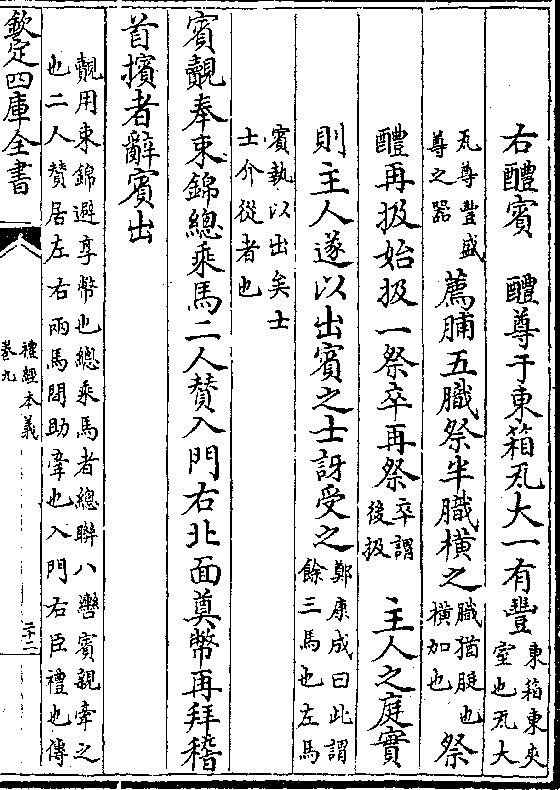 右醴賓　醴尊于東箱瓦大一有豐東箱東夾室也瓦大
瓦尊豐盛尊之器　薦脯五膱祭半膱橫之膱猶脡也橫加也　祭
醴再扱始扱一祭卒再祭卒謂後扱　主人之庭實
則主人遂以出賓之士訝受之鄭康成曰此謂餘三馬也左馬
賓執以出矣士士介從者也
賓覿奉束錦總乘馬二人贊入門右北面奠幣再拜稽
首擯者辭賓出
覿用束錦避享幣也總乘馬者總聯八轡賓親牽之
也二人贊居左右兩馬間助牽也入門右臣禮也傳
欽定四庫全書
禮經本義
卷九
二十二